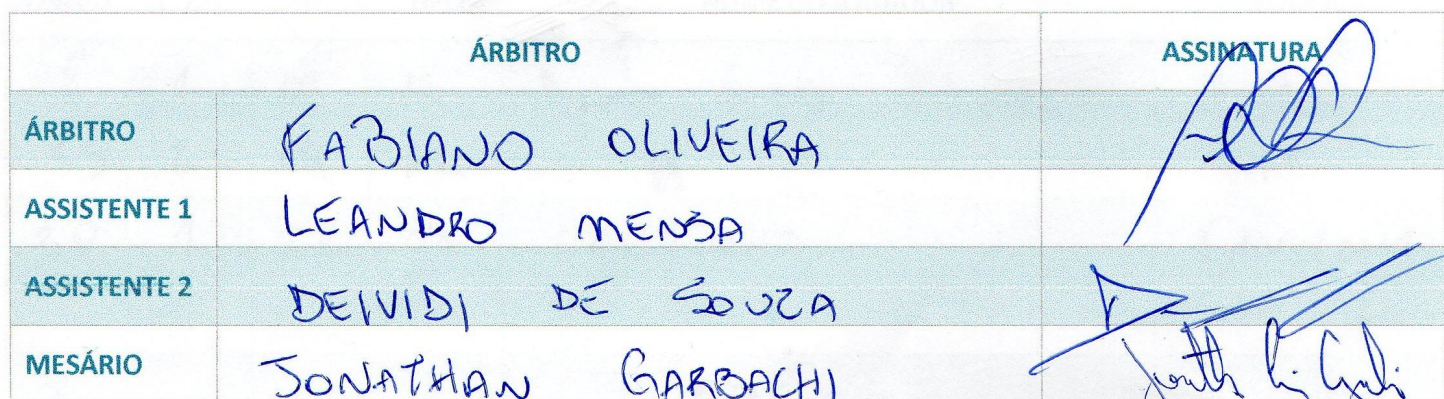 ÁRBITRO ASSINATURA
ÁRBITRO FABIANO OLIVEIRA
ASSISTENTE 1 LEANDRO MENSA
ASSISTENTE 2 DEIVIDI DE SOUZA
MESÁRIO JONATHAN GARBACHI